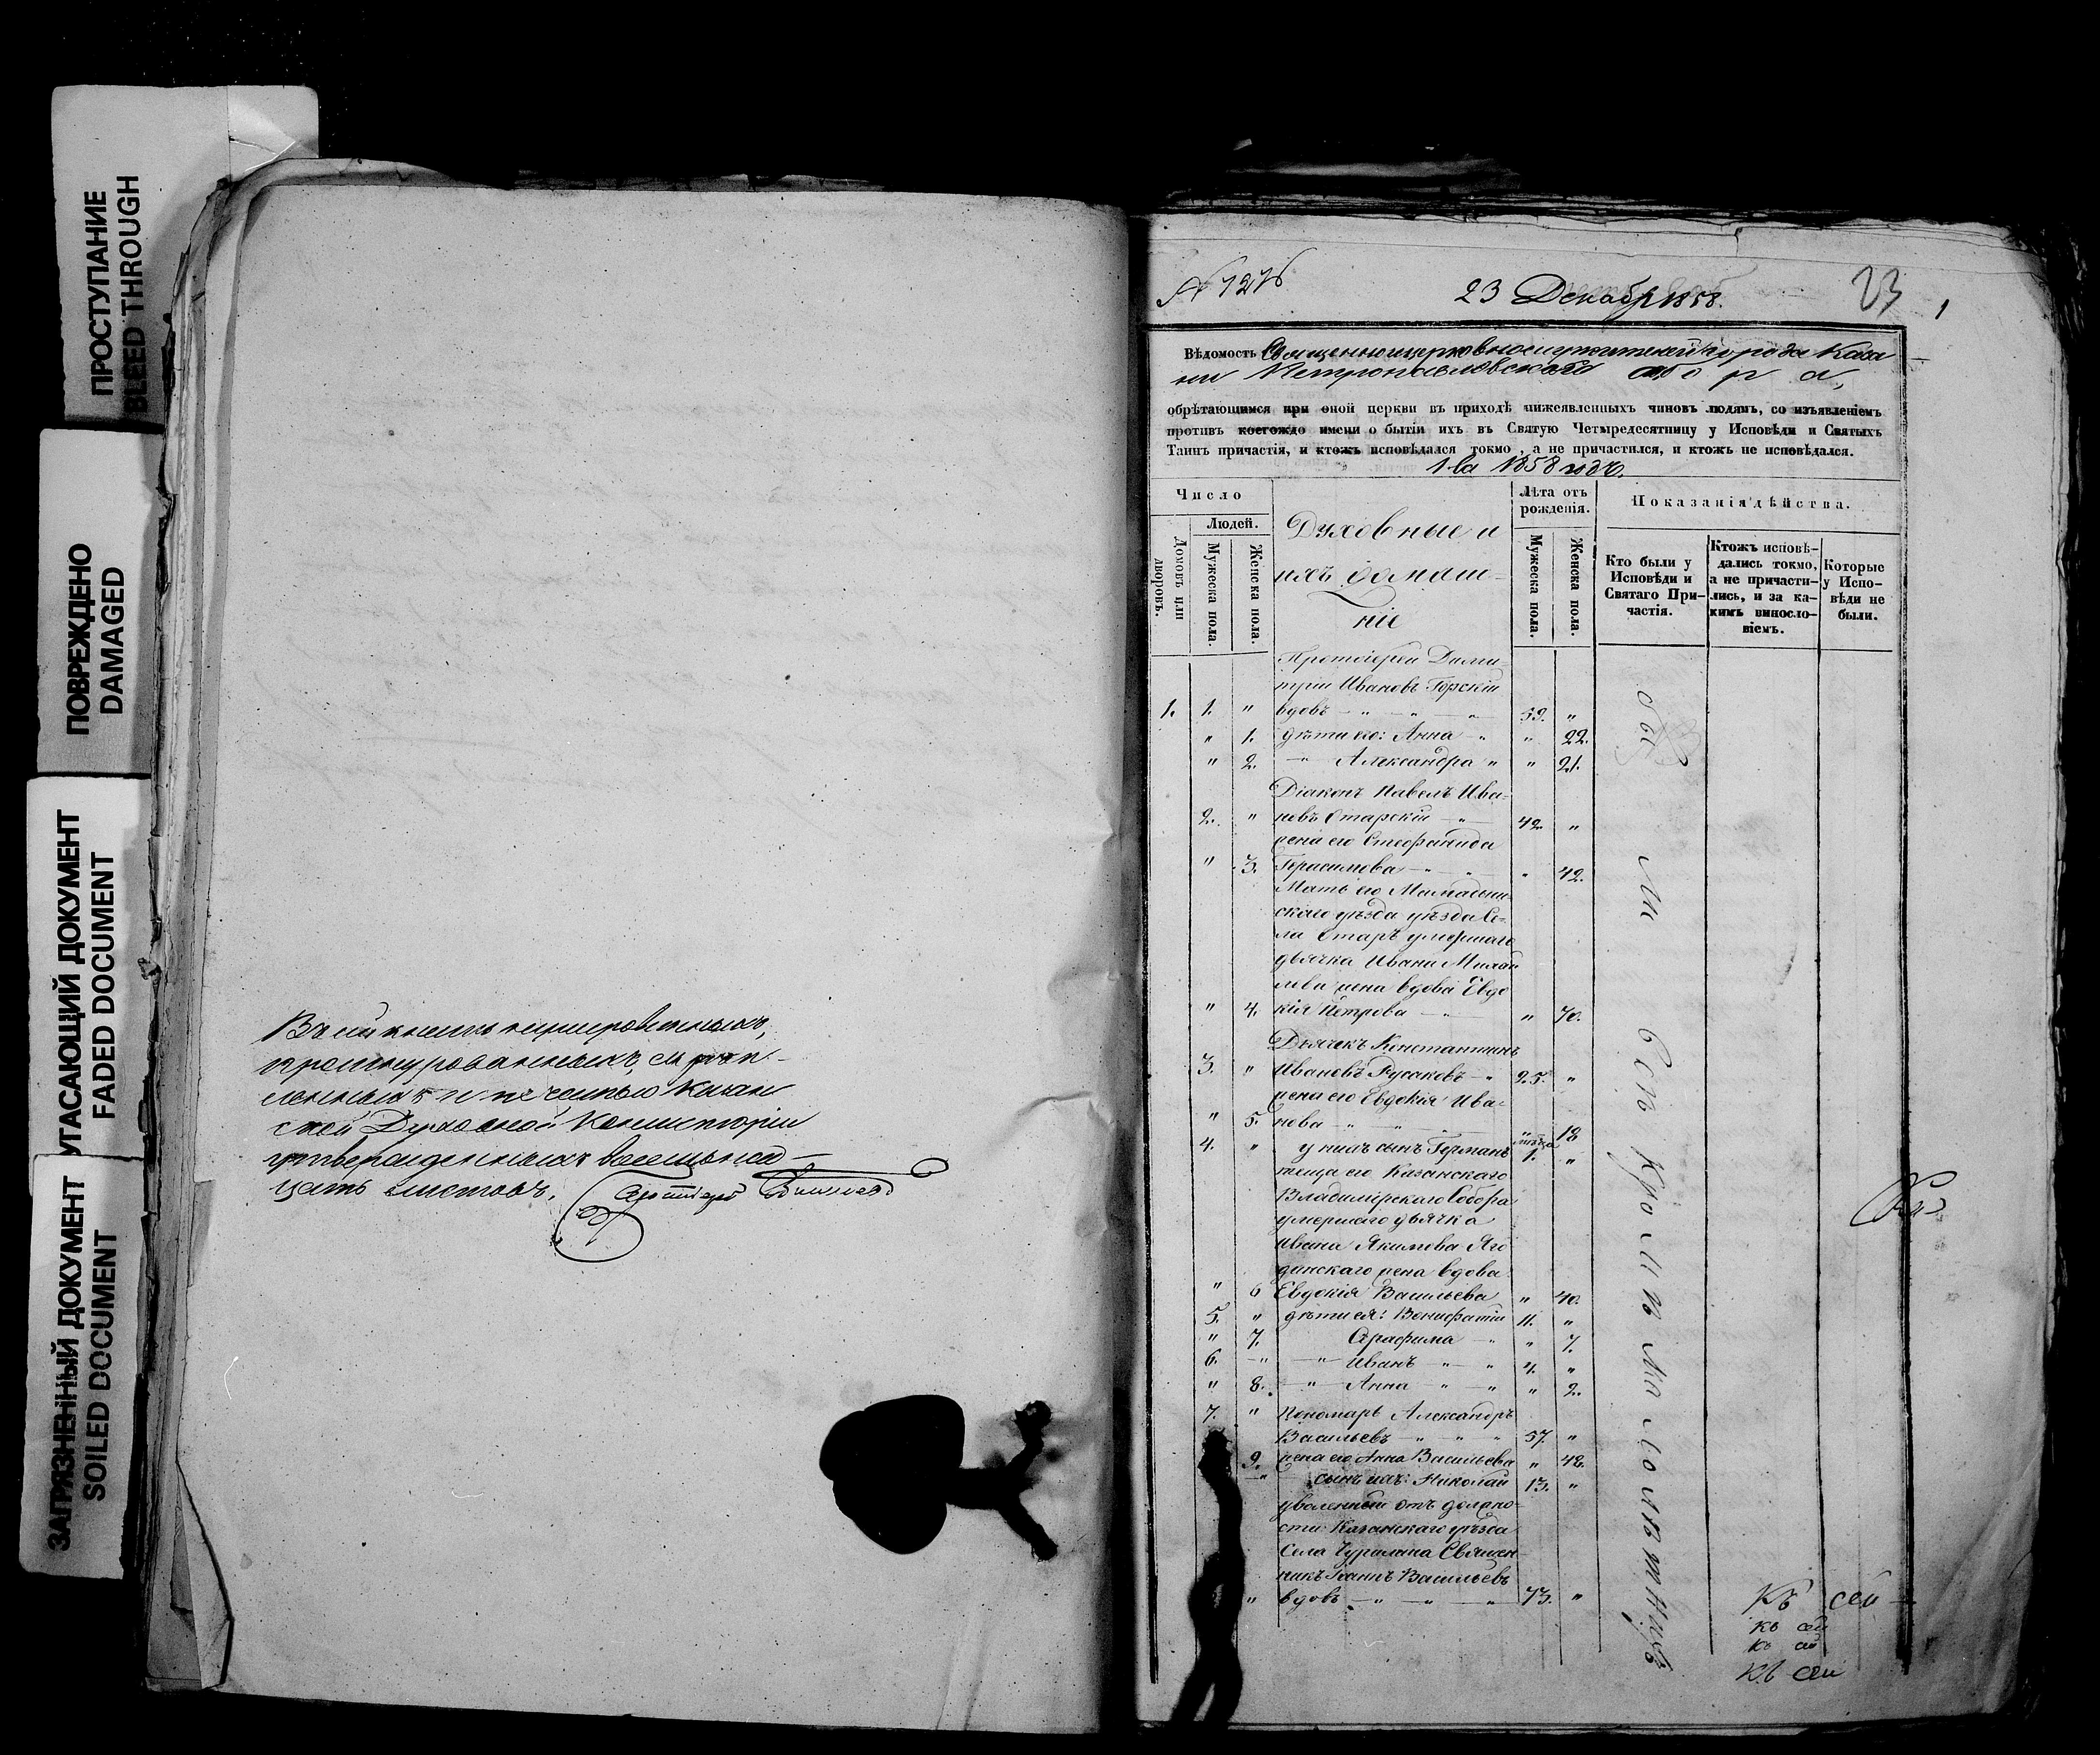 ПРОСТУПАНИЕ
BLEED THROUGH
ПОВРЕЖДЕНО
DAMAGED
УГАСАЮЩИЙ ДОКУМЕНТ
FADED DOCUMENT
ЗАГРЯЗНЕННЫЙ ДОКУМЕНТ
SOILED DOCUMENT
Въ сей книгѣ нумерованныхъ,
прошнурованныхъ, скрѣп-
ленныхъ и печатью Казан
ской Духовной Консисторіи
утвержденныхъ восемьнад-
цать листовъ.
23 Декабр 1858.
23
1
Вѣдомость Священноцерковнослужителей города Каза
ни Петропавловскаго собора,
обрѣтающимся при оной церкви въ приходѣ нижеявленныхъ чиновъ людямъ, со изъявленіемъ
противъ коегождо имени о бытіи ихъ въ Святую Четыредесятницу у Исповѣди и Святыхъ
Таинъ причастія, и ктожъ исповѣдался токмо, а не причастился, и ктожъ не исповѣдался.
1858 годъ.
Число
Людей.
Домовъ или дворовъ.
Мужеска пола.
Женска пола.
Духовные и
ихъ домаш-
ніе
Лѣта отъ рожденія.
Мужеска пола.
Женска пола.
Показанія дѣйства.
Кто были у Исповѣди и Святаго Причастія.
Ктожъ исповѣдались токмо, а не причастились, и за какимъ винословіемъ.
Которые у Исповѣди не были.
Протоіерей Дими-
трій Ивановъ Горскій
1. 1. " вдовъ - " - " - " 59. "
" 1. дѣти его: Анна - " " 22.
" 2. - " Александра " " 21.
Діаконъ Павелъ Ива-
2. " новъ Старскій - " 42. "
жена его Стефанида
" 3. Герасимова - " - " " 42.
Мать его Мамадыш
скаго уѣзда уѣзда Се-
ла Старъ умершаго
дьячка Ивана Михай
лова жена вдова Евдо
" 4. кія Петрова - " " 70.
Дьячекъ Константинъ
3. " Ивановъ Русаковъ - " 25. "
жена его Евдокія Ива-
" 5. нова - " - " " 18
4. " у нихъ сынъ Германъ 1. "
теща его Казанскаго
Владимірскаго Собора
умершаго дьячка
Ивана Якимова Яго
динскаго жена вдова
" 6 Евдокія Васильева " 40.
5. " дѣти ея: Вонифатій 11. "
" 7. Серафима - " " 7.
6. - " - " Иванъ - " - " 4. "
" 8. - " - Анна - " - " " 2.
7. " Пономарь Александръ
Васильевъ - " - " - " 57. "
9. жена его Анна Васильева " 48.
" сынъ ихъ: Николай 13. "
уволенный отъ должно-
сти Казанскаго уѣзда
Села Чурилина Священ
никъ Іоаннъ Васильевъ
" вдовъ - " - " - " 73. "
Къ сей
къ сей
къ сей
Къ сей